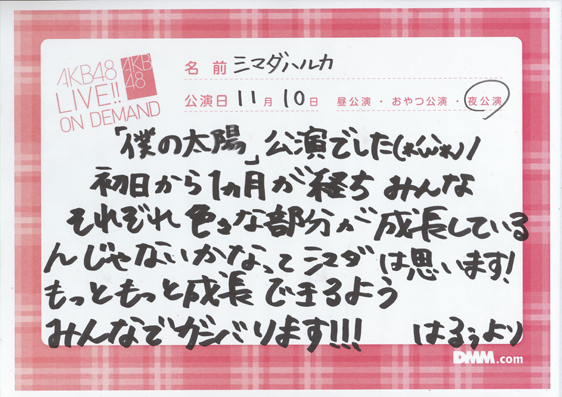 AKB48
LIVE!!
ON DEMAND
AKB
48
名前 シマダハルカ
公演日 11月10日 昼公演・おやつ公演・夜公演
「僕の太陽」公演でした(*´ω`*)ノ
初日から1ヵ月が経ち みんな
それぞれ色々な部分が成長している
んじゃないかなって シマダは思います!
もっともっと成長できるよう
みんなでガンバります!!! はるぅより
DMM.com